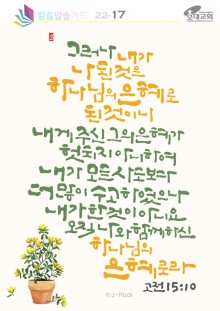 말씀암송카드 22-17
그러나 내가
나 된 것은
하나님의 은혜로
된 것이니
내게 주신 그의 은혜가
헛되지 아니하여
내가 모든 사도보다
더 많이 수고하였으나
내가 한 것이 아니요
오직 나와 함께하신
하나님의
은혜로라
고전 15:10
@ J-Rock